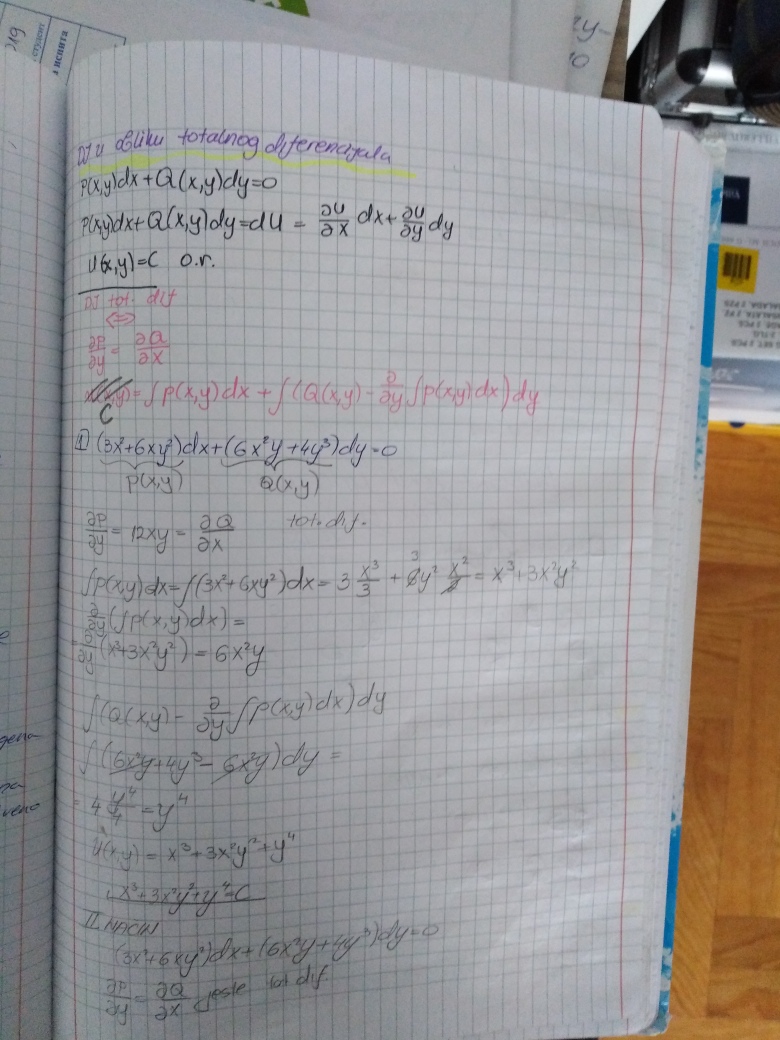 DJ u obliku totalnog diferencijala
P(x,y)dx+Q(x,y)dy=0
P(x,y)dx+Q(x,y)dy=dU = ∂U/∂x dx+ ∂U/∂y dy
U(x,y)=C o.r.
DJ tot. dif
⇔
∂P/∂y = ∂Q/∂x
= ∫P(x,y)dx + ∫(Q(x,y) - ∂/∂y ∫P(x,y)dx)dy
C
1 (3x²+6xy²)dx+(6x²y+4y³)dy=0
P(x,y) Q(x,y)
∂P/∂y = 12xy = ∂Q/∂x tot. dif.
∫P(x,y)dx=∫(3x²+6xy²)dx= 3 x³/3 + 6y² x²/2 = x³+3x²y²
∂/∂y(∫P(x,y)dx)=
= ∂/∂y(x³+3x²y²) = 6x²y
∫(Q(x,y) - ∂/∂y ∫P(x,y)dx)dy
∫(6x²y+4y³-6x²y)dy =
= 4 y⁴/4 = y⁴
U(x,y) = x³+3x²y²+y⁴
x³+3x²y²+y⁴=C
II NAČIN
(3x²+6xy²)dx+(6x²y+4y³)dy=0
∂P/∂y = ∂Q/∂x jeste tot dif.